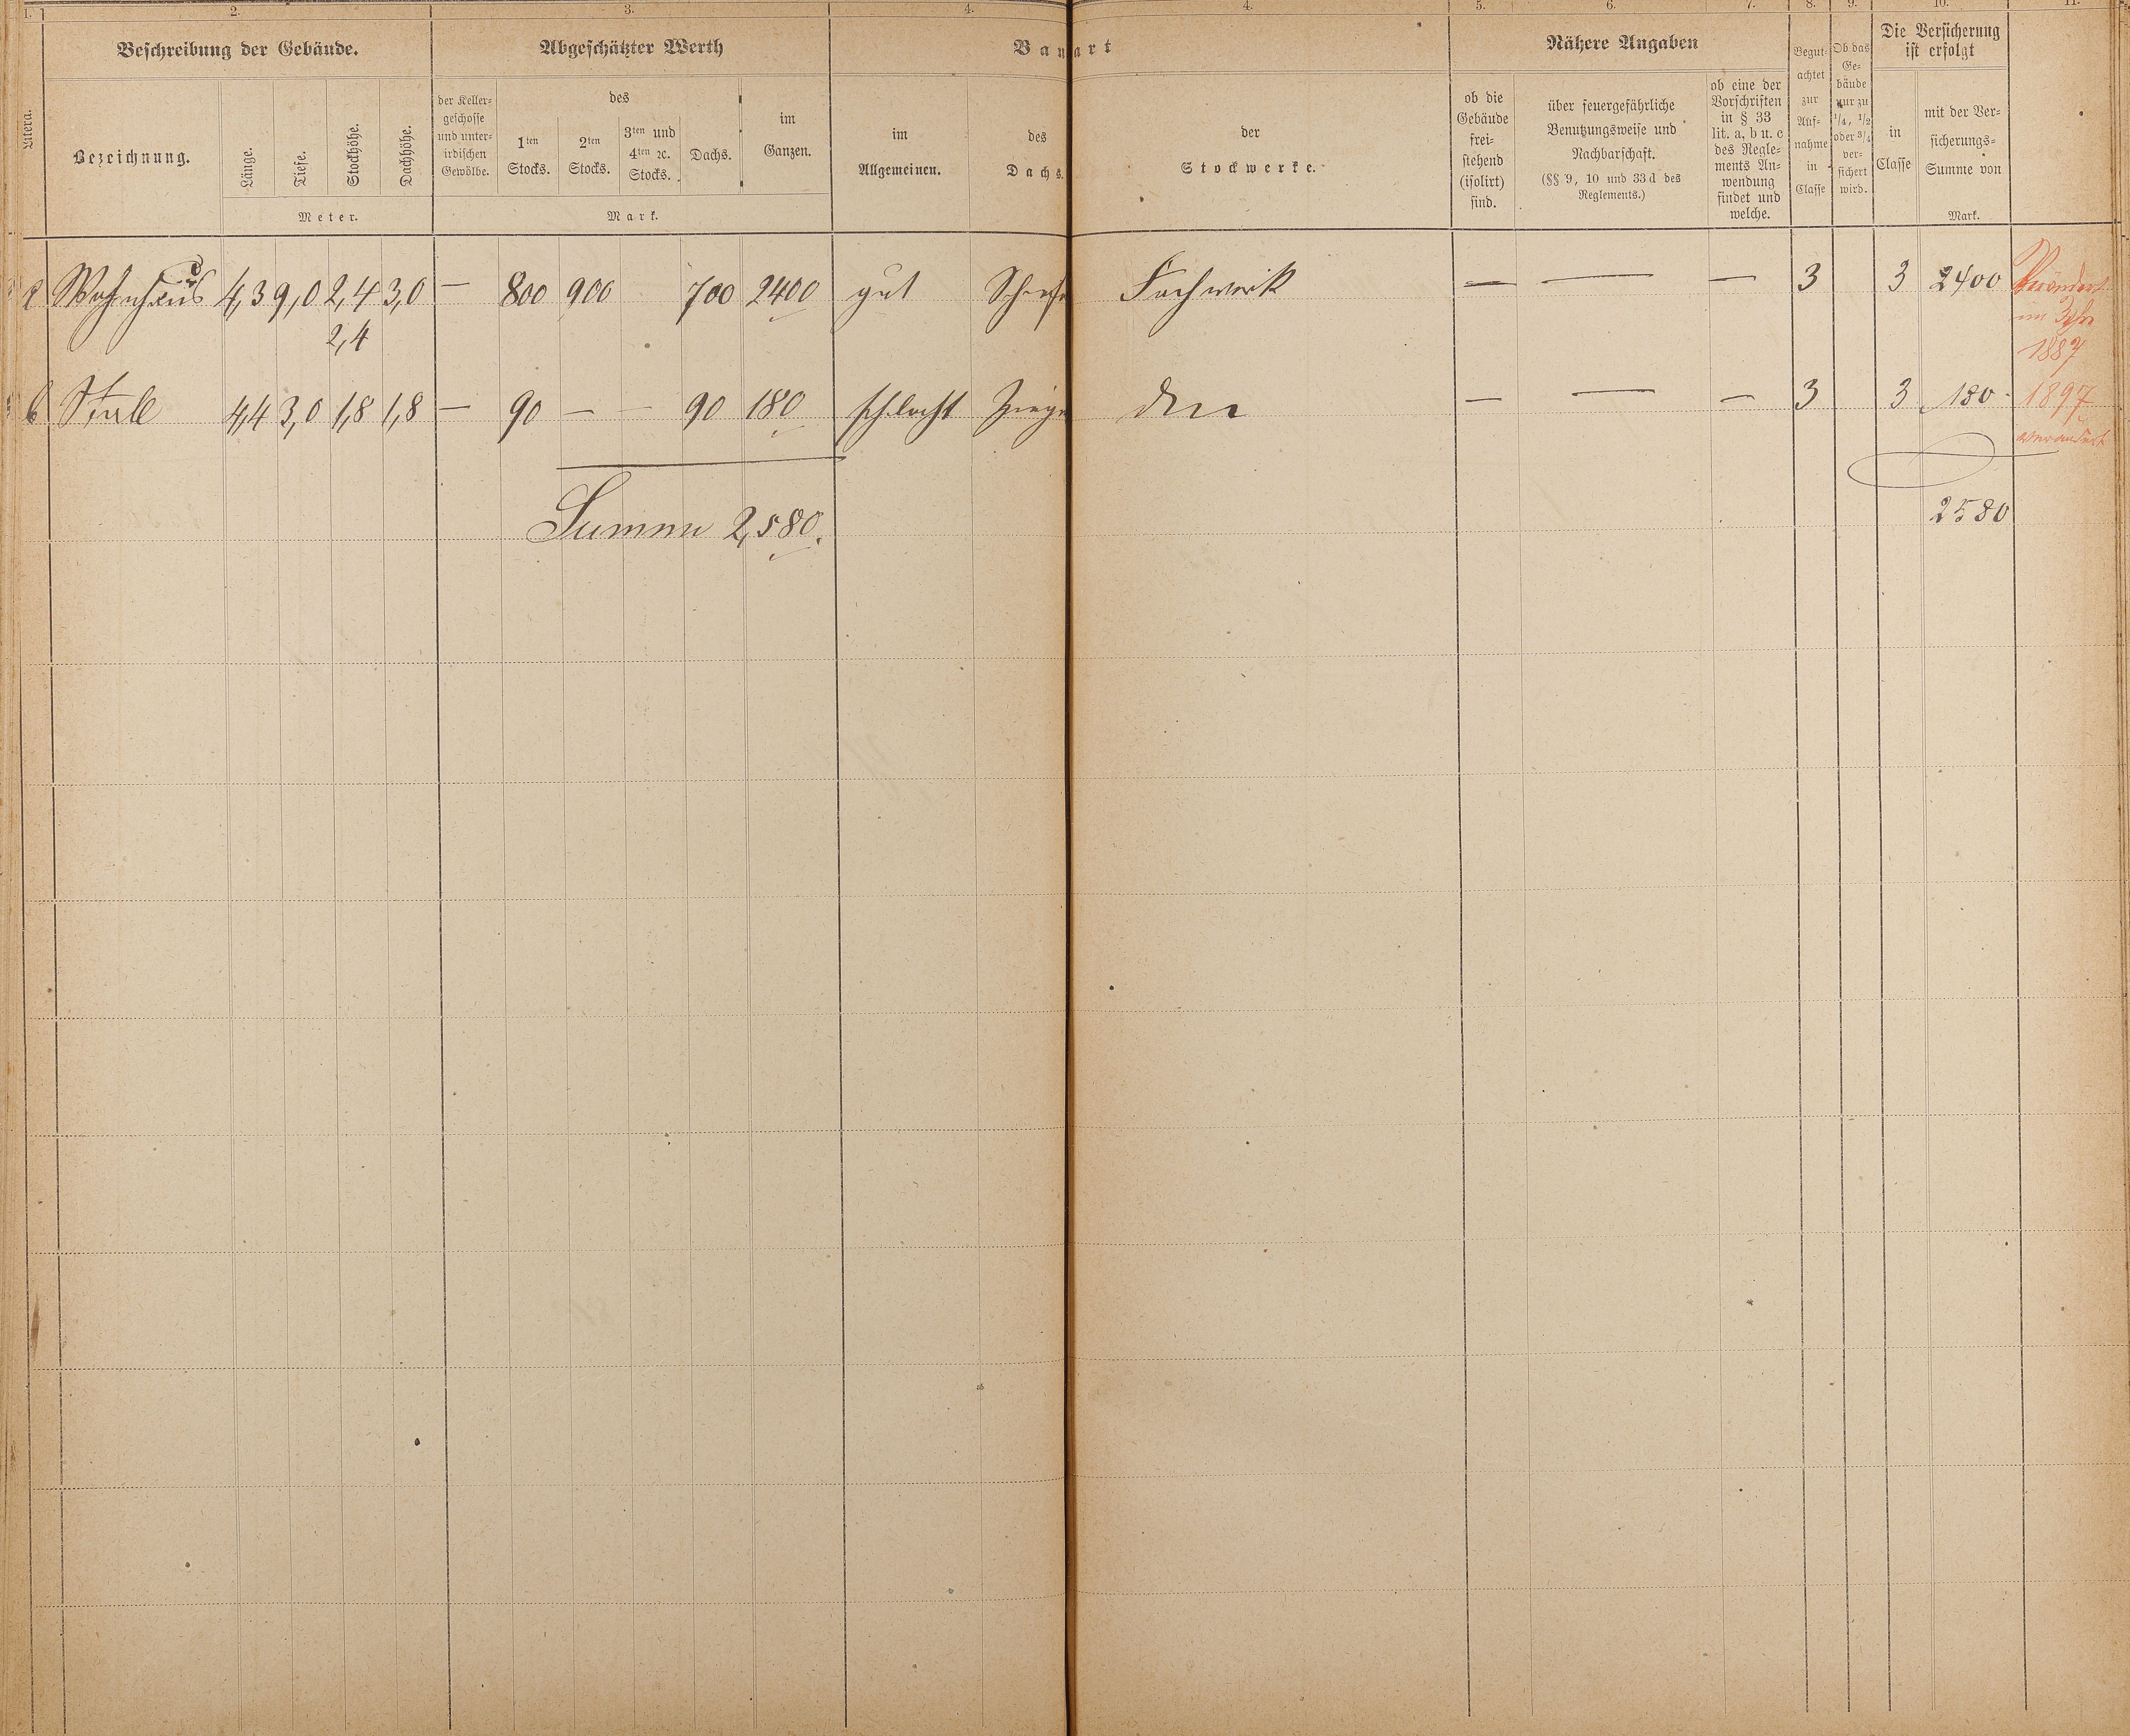 1. 2. 3. 4. 4. 5. 6. 7. 8. 9. 10. 11.
Beschreibung der Gebäude. Abgeschätzter Werth Bauart Nähere Angaben Die Versicherung ist erfolgt
Litera.
Bezeichnung.
Länge. Tiefe. Stockhöhe. Dachhöhe.
Meter.
der Keller-
geschosse
und unter-
irdischen
Gewölbe.
des
1ten Stocks.
2ten Stocks.
3ten und 4ten ꝛc. Stocks.
Dachs.
im Ganzen.
Mark.
im Allgemeinen.
des Dachs.
der Stockwerke.
ob die
Gebäude
frei-
stehend
(isolirt)
sind.
über feuergefährliche
Benutzungsweise und
Nachbarschaft.
(§§ 9, 10 und 33 d des
Reglements.)
ob eine der
Vorschriften
in § 33
lit. a, b u. c
des Regle-
ments An-
wendung
findet und
welche.
Begut-
achtet
zur
Auf-
nahme
in
Classe
Ob das
Ge-
bäude
nur zu
1/4, 1/2
oder 3/4
ver-
sichert
wird.
in
Classe
mit der Ver-
sicherungs-
Summe von
Mark.
a Wohnhaus 4,3 9,0 2,4 3,0 — 800 900 700 2400 gut Schiefe Fachwerk — — — 3 3 2400 Verändert
2,4 im Jahre
1887
b Stall 4,4 3,0 1,8 1,8 — 90 — — 90 180 schlecht Ziege — — — 3 3 180 1897
verändert
Summe 2,580. 2580